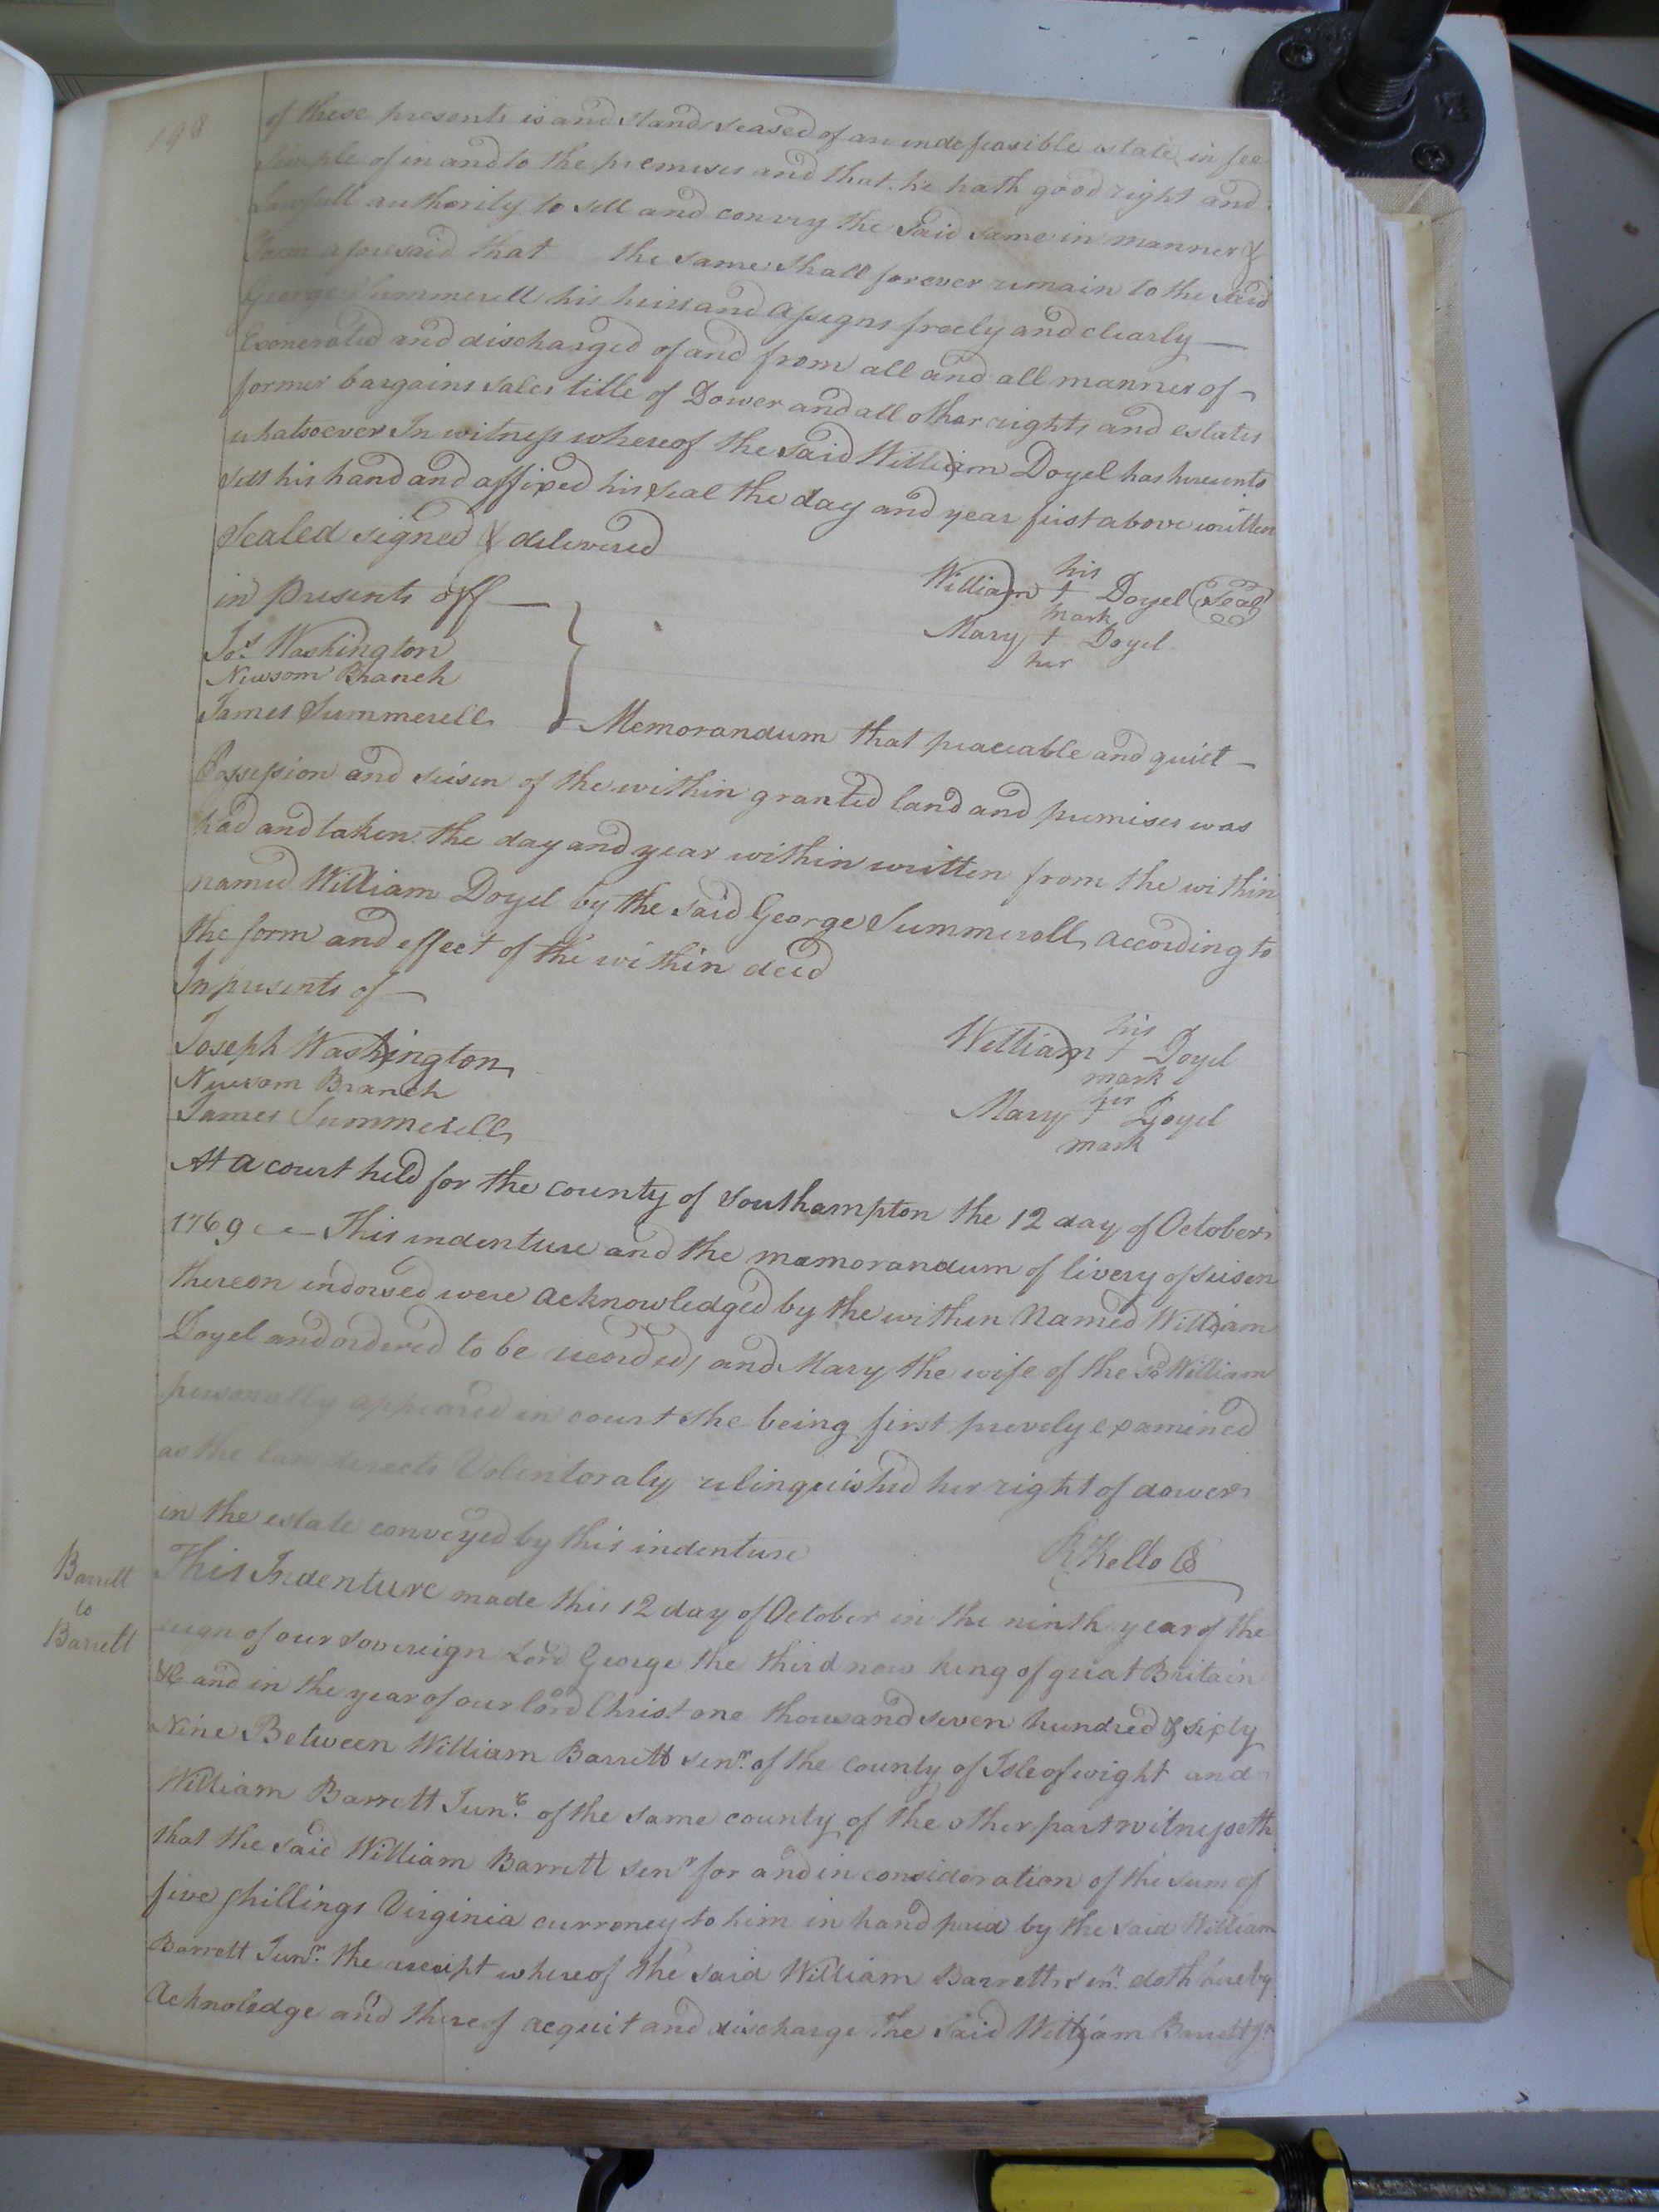 198
of these presents is and stands seased of an indefeasible estate in fee
simple of in and to the premises and that he hath good right and
Lawfull authority to sell and convey the said same in manner &
Form aforesaid that the same shall forever remain to the said
George Summerell his heirs and assigns freely and clearly
Exonerated and discharged of and from all and all manner of
former bargains sales title of Dower and all other rights and estates
whatsoever In witness whereof the said William Doyel has hereunto
sett his hand and affixed his seal the day and year first above written
Sealed signed & delivered
in presents off
Jos. Washington
Newsom Branch
James Summerell
his
William + Doyel Seal
mark
Mary + Doyel
her
Memorandum that peaceable and quiet
Possession and seisen of the within granted land and premises was
had and taken the day and year within written from the within
named William Doyel by the said George Summerell according to
the form and effect of the within deed
In presents of
Joseph Washington
Newsom Branch
James Summerell
his
William + Doyel
mark
her
Mary + Doyel
mark
At a court held for the county of Southampton the 12 day of October
1769 This indenture and the memorandum of livery of seisen
thereon indorsed were acknowledged by the within Named William
Doyel and ordered to be recorded, and Mary the wife of the sd William
personally appeared in court she being first prevely examined
as the law derects Volentoraly relinquished her right of dower
in the estate conveyed by this indenture
R Kello C
Barrett
to
Barrett
This Indenture made this 12 day of October in the ninth year of the
reign of our sovereign Lord George the third now king of great Britain
&c and in the year of our lord Christ one thousand seven hundred & sixty
Nine Between William Barrett senr. of the county of Isle of wight and
William Barrett Junr. of the same county of the other part witnesseth
that the said William Barrett senr for and in consideration of the sum of
five shillings Virginia curroney to him in hand paid by the said William
Barrett Junr. the receipt whereof the said William Barrett senr. doth hereby
Acknoledge and thereof acquit and discharge the said William Barrett Jr